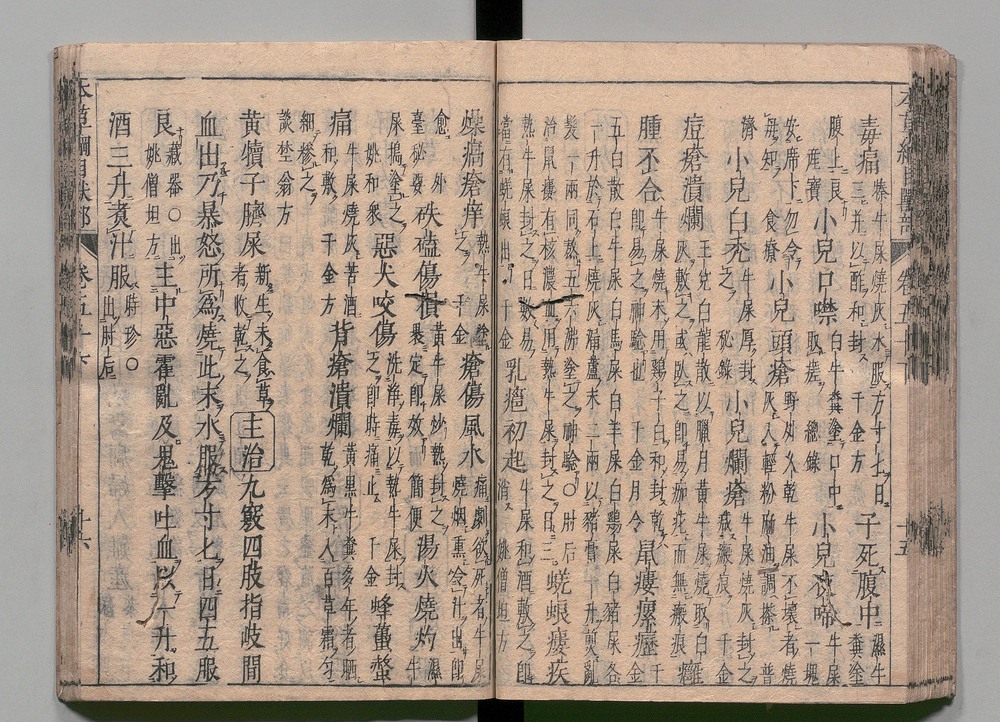 毒痛 牛屎燒灰水服方寸匕日
三并以酢和封 千金方 子死腹中 濕牛糞塗
腹上良 產寶 小兒口噤 白牛糞塗口中
取瘥 總錄 小兒夜啼 牛屎一塊
安席下勿令
母知 食療 小兒頭瘡 野外久乾牛屎不壞者燒
灰入輕粉麻油調搽 普
濟 小兒白禿 牛屎厚封
之 秘錄 小兒爛瘡 牛屎燒灰封之
滅瘢痕 千金
痘瘡潰爛 王兌白龍散以臘月黃牛屎燒取白
灰敷之或臥之即易痂疕而無瘢痕 癰
腫不合 牛屎燒末用雞子白和封乾
即易之神驗也 千金月令 鼠瘻瘰癧 千金
五白散白牛屎白馬屎白羊屎白雞屎白豬屎各
一升於石上燒灰漏蘆末二兩以豬膏一升煎亂
髮一兩同熬五六沸塗之神驗○肘后
治鼠瘻有核濃血用熱牛屎封之日三 蟯蛔瘻疾
熱牛屎封之日數易
當有蟯蛔出 千金 乳癰初起 牛屎和酒敷之即
消 姚僧坦方
燥瘑瘡痒 熱牛屎塗
之 千金 瘡傷風水 痛劇欲死者牛屎
燒烟熏令汁出即
愈 外
臺秘要 趺磕傷損 黃牛屎炒熱封之
裹定即效 簡便 湯火燒灼 濕牛
屎搗塗之
姚和衆 惡犬咬傷 洗淨毒以熱牛屎封
之即時痛止 千金 蜂蠆螫
痛 牛屎燒灰苦酒
和敷 千金方 背瘡潰爛 黃黑牛糞多年者晒
乾爲末入百草霜勻
細糝之
談埜翁方
黃犢子臍屎 新生未食草
者收乾之 主治 九竅四肢指歧間
血出乃暴怒所爲燒此末水服方寸匕日四五服
良 藏器○出
姚僧坦方 主中惡霍亂及鬼擊吐血以一升和
酒三升煮汁服 時珍○
出肘后